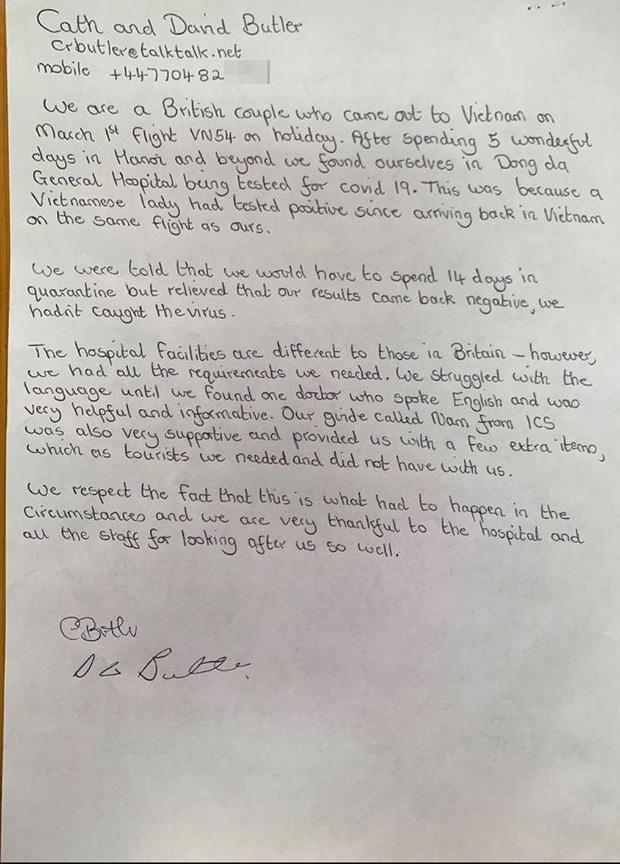 Cath and David Butler
crbutler@talktalk.net
mobile +44770482
We are a British couple who came out to Vietnam on
March 1st flight VN54 on holiday. After spending 5 wonderful
days in Hanoi and beyond we found ourselves in Dong da
General Hospital being tested for covid 19. This was because a
Vietnamese lady had tested positive since arriving back in Vietnam
on the same flight as ours.
We were told that we would have to spend 14 days in
quarantine but relieved that our results came back negative, we
hadn't caught the virus.
The hospital facilities are different to those in Britain - however,
we had all the requirements we needed. We struggled with the
language until we found one doctor who spoke English and was
very helpful and informative. Our guide called Nam from ICS
was also very supportive and provided us with a few extra items,
which as tourists we needed and did not have with us.
We respect the fact that this is what had to happen in the
circumstances and we are very thankful to the hospital and
all the staff for looking after us so well.
CButler
D G Butler